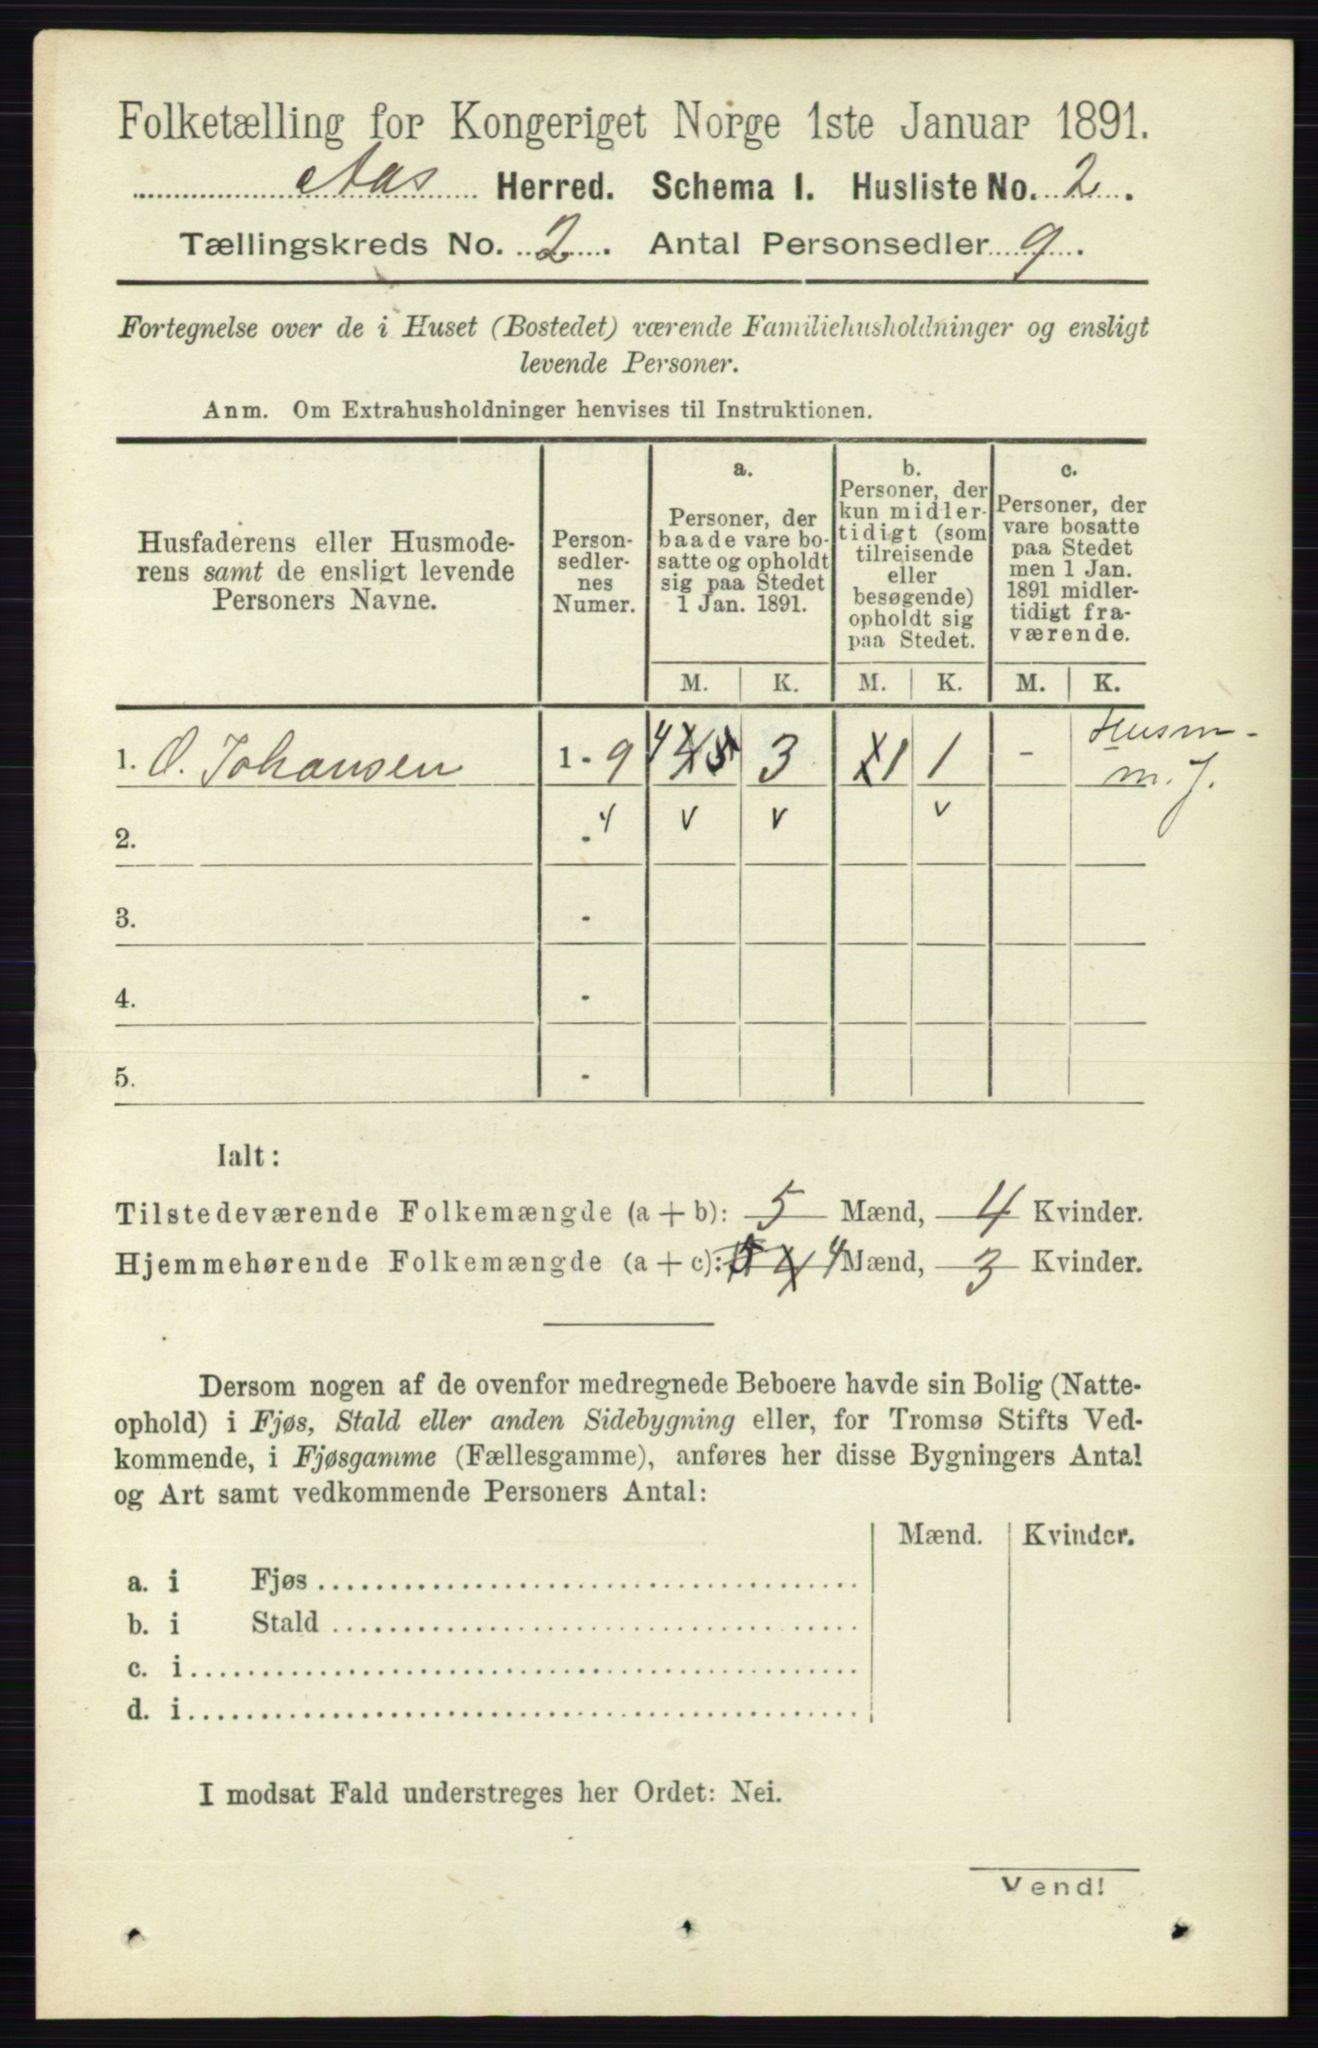 Folketælling for Kongeriget Norge 1ste Januar 1891.
Aas Herred. Schema I. Husliste No. 2.
Tællingskreds No. 2. Antal Personsedler 9.
Fortegnelse over de i Huset (Bostedet) værende Familiehusholdninger og ensligt
levende Personer.
Anm. Om Extrahusholdninger henvises til Instruktionen.
Husfaderens eller Husmode-
rens samt de ensligt levende
Personers Navne.
Person-
sedler-
nes
Numer.
a.
Personer, der
baade vare bo-
satte og opholdt
sig paa Stedet
1 Jan. 1891.
b.
Personer, der
kun midler-
tidigt (som
tilreisende
eller
besøgende)
opholdt sig
paa Stedet.
c.
Personer, der
vare bosatte
paa Stedet
men 1 Jan.
1891 midler-
tidigt fra-
værende.
M. K. M. K. M. K.
1. O. Johansen 1 - 9 4 3 1 1 - Husm-
m. J.
2. - 4 v v v
3. -
4. -
5. -
Ialt:
Tilstedeværende Folkemængde (a + b): 5 Mænd, 4 Kvinder.
Hjemmehørende Folkemængde (a + c): 4 Mænd, 3 Kvinder.
Dersom nogen af de ovenfor medregnede Beboere havde sin Bolig (Natte-
ophold) i Fjøs, Stald eller anden Sidebygning eller, for Tromsø Stifts Ved-
kommende, i Fjøsgamme (Fællesgamme), anføres her disse Bygningers Antal
og Art samt vedkommende Personers Antal:
Mænd. Kvinder.
a. i Fjøs
b. i Stald
c. i
d. i
I modsat Fald understreges her Ordet: Nei.
Vend!